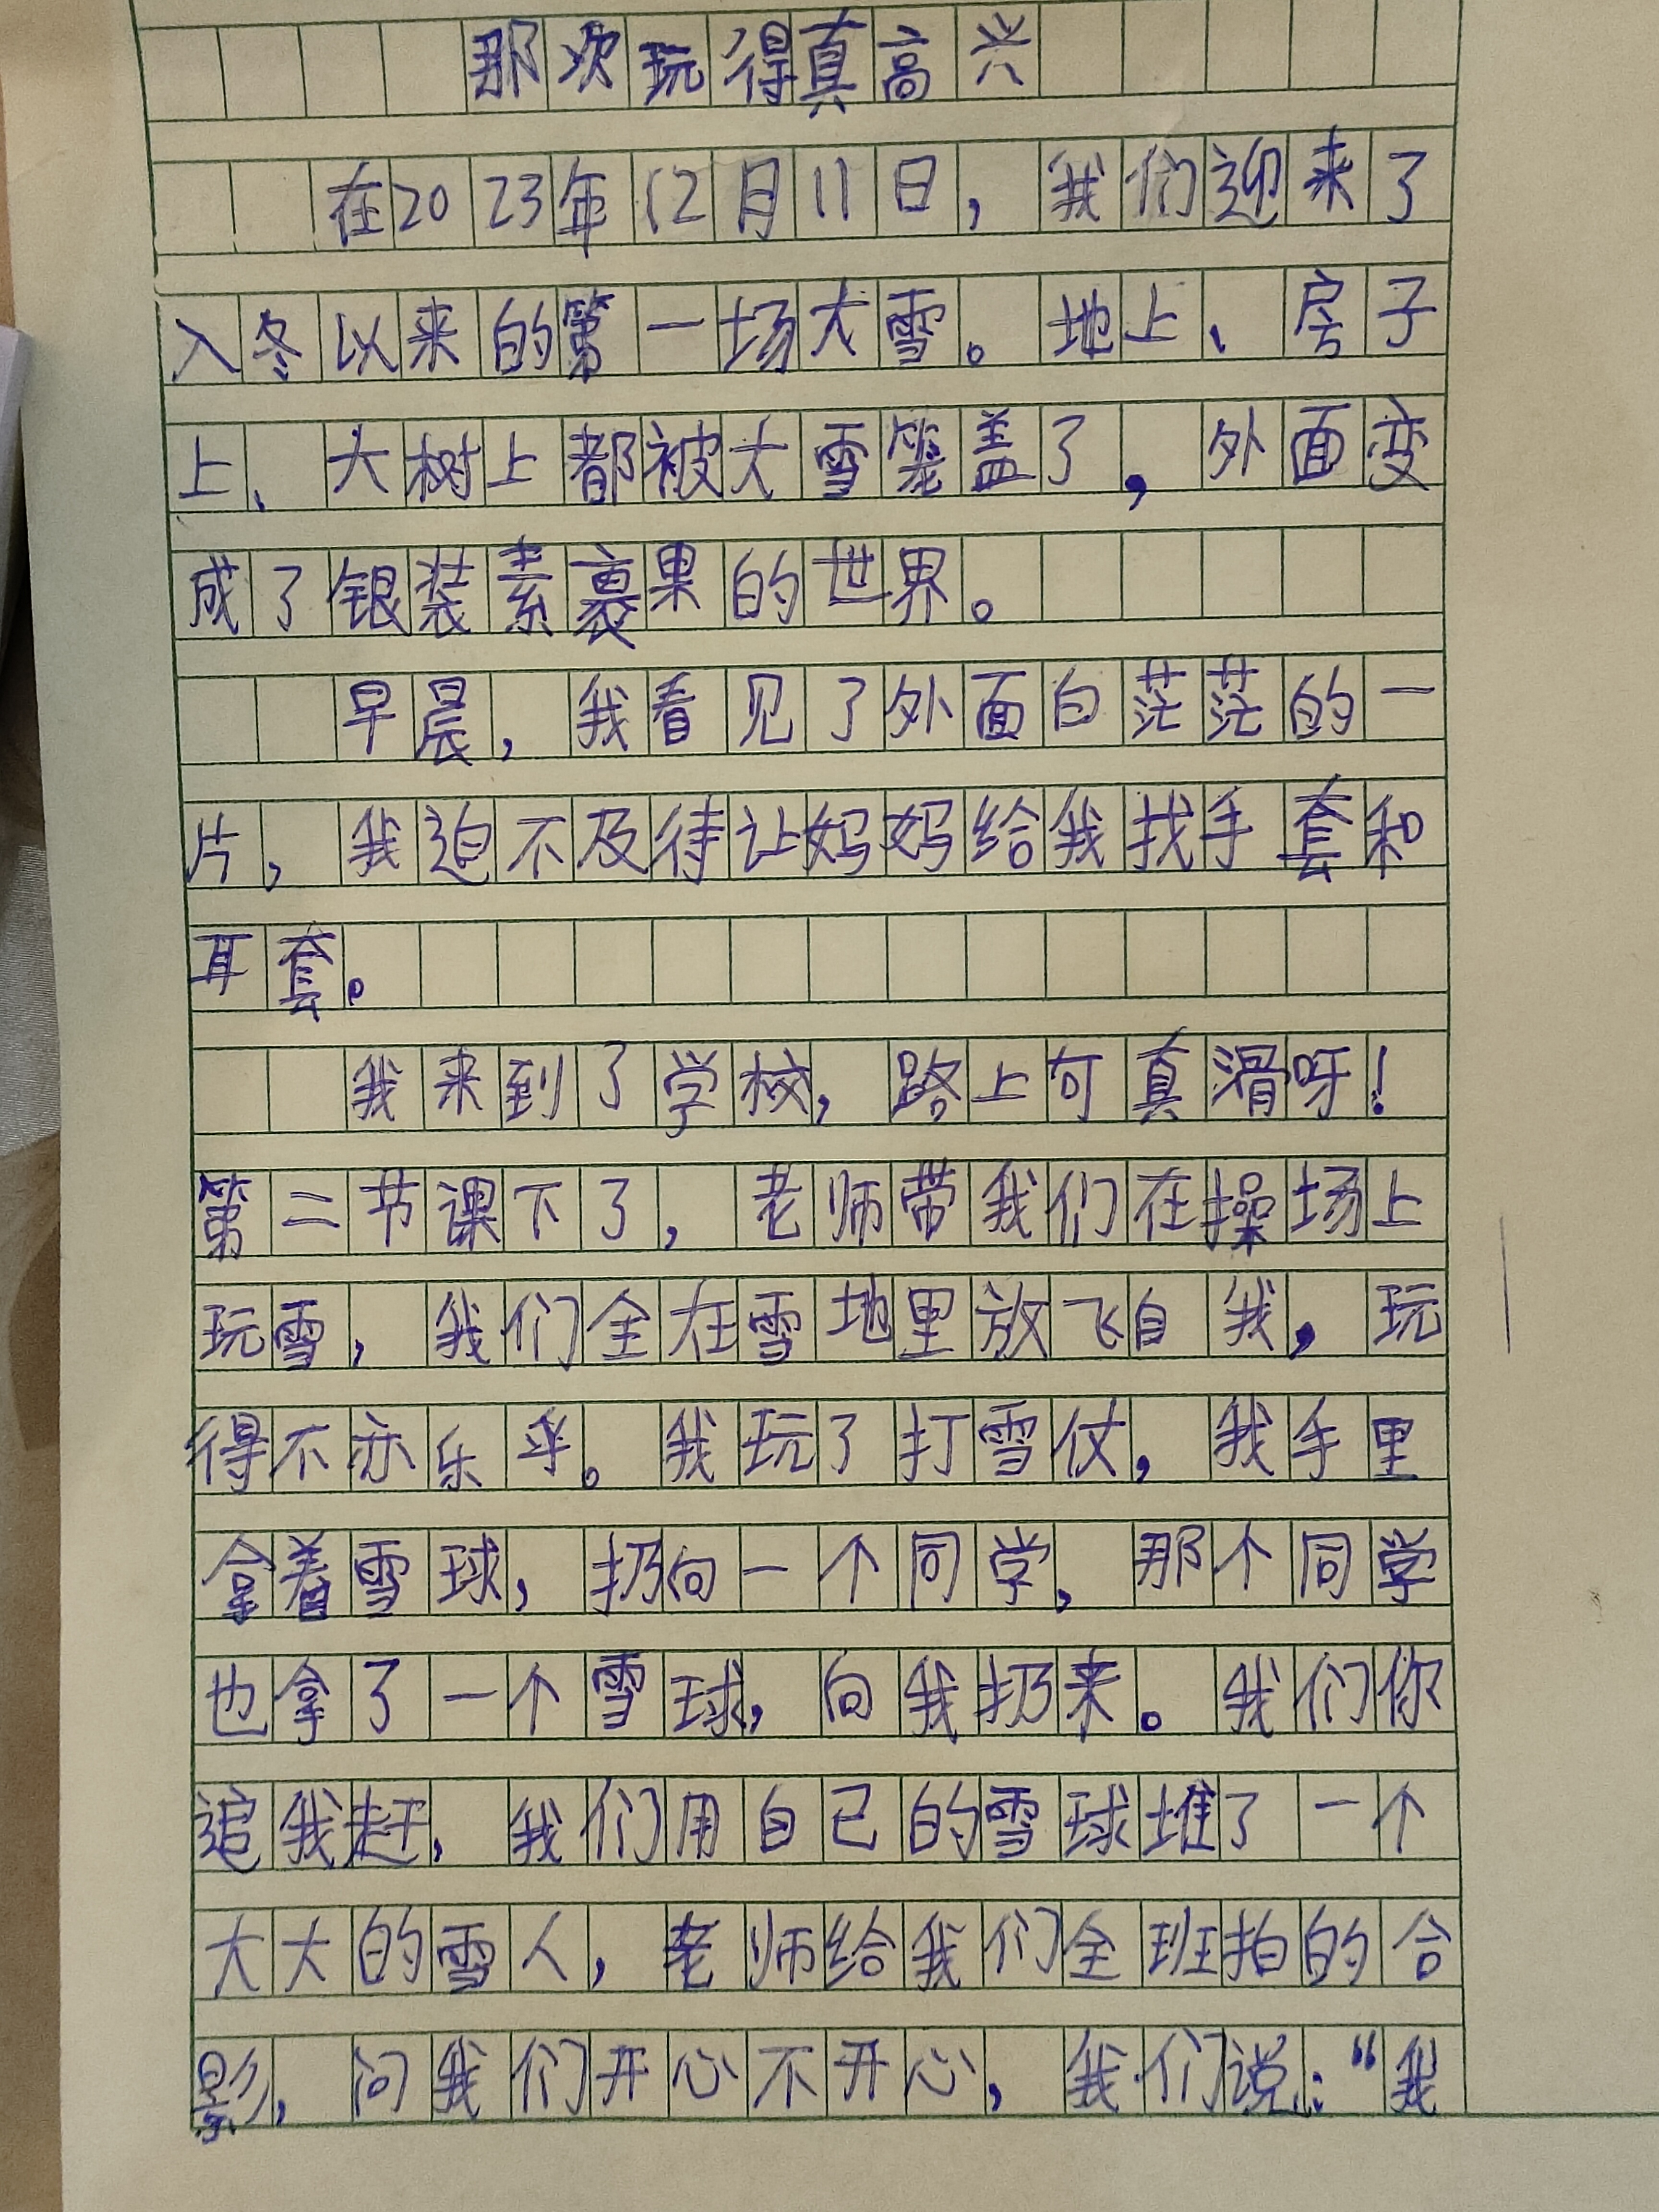 那次玩得真高兴
在2023年12月11日，我们迎来了
入冬以来的第一场大雪。地上、房子
上、大树上都被大雪笼盖了，外面变
成了银装素裹果的世界。
早晨，我看见了外面白茫茫的一
片，我迫不及待让妈妈给我找手套和
耳套。
我来到了学校，路上可真滑呀！
第二节课下了，老师带我们在操场上
玩雪，我们全在雪地里放飞自我，玩
得不亦乐乎。我玩了打雪仗，我手里
拿着雪球，扔向一个同学，那个同学
也拿了一个雪球，向我扔来。我们你
追我赶，我们用自己的雪球堆了一个
大大的雪人，老师给我们全班拍的合
影，问我们开心不开心，我们说：“我